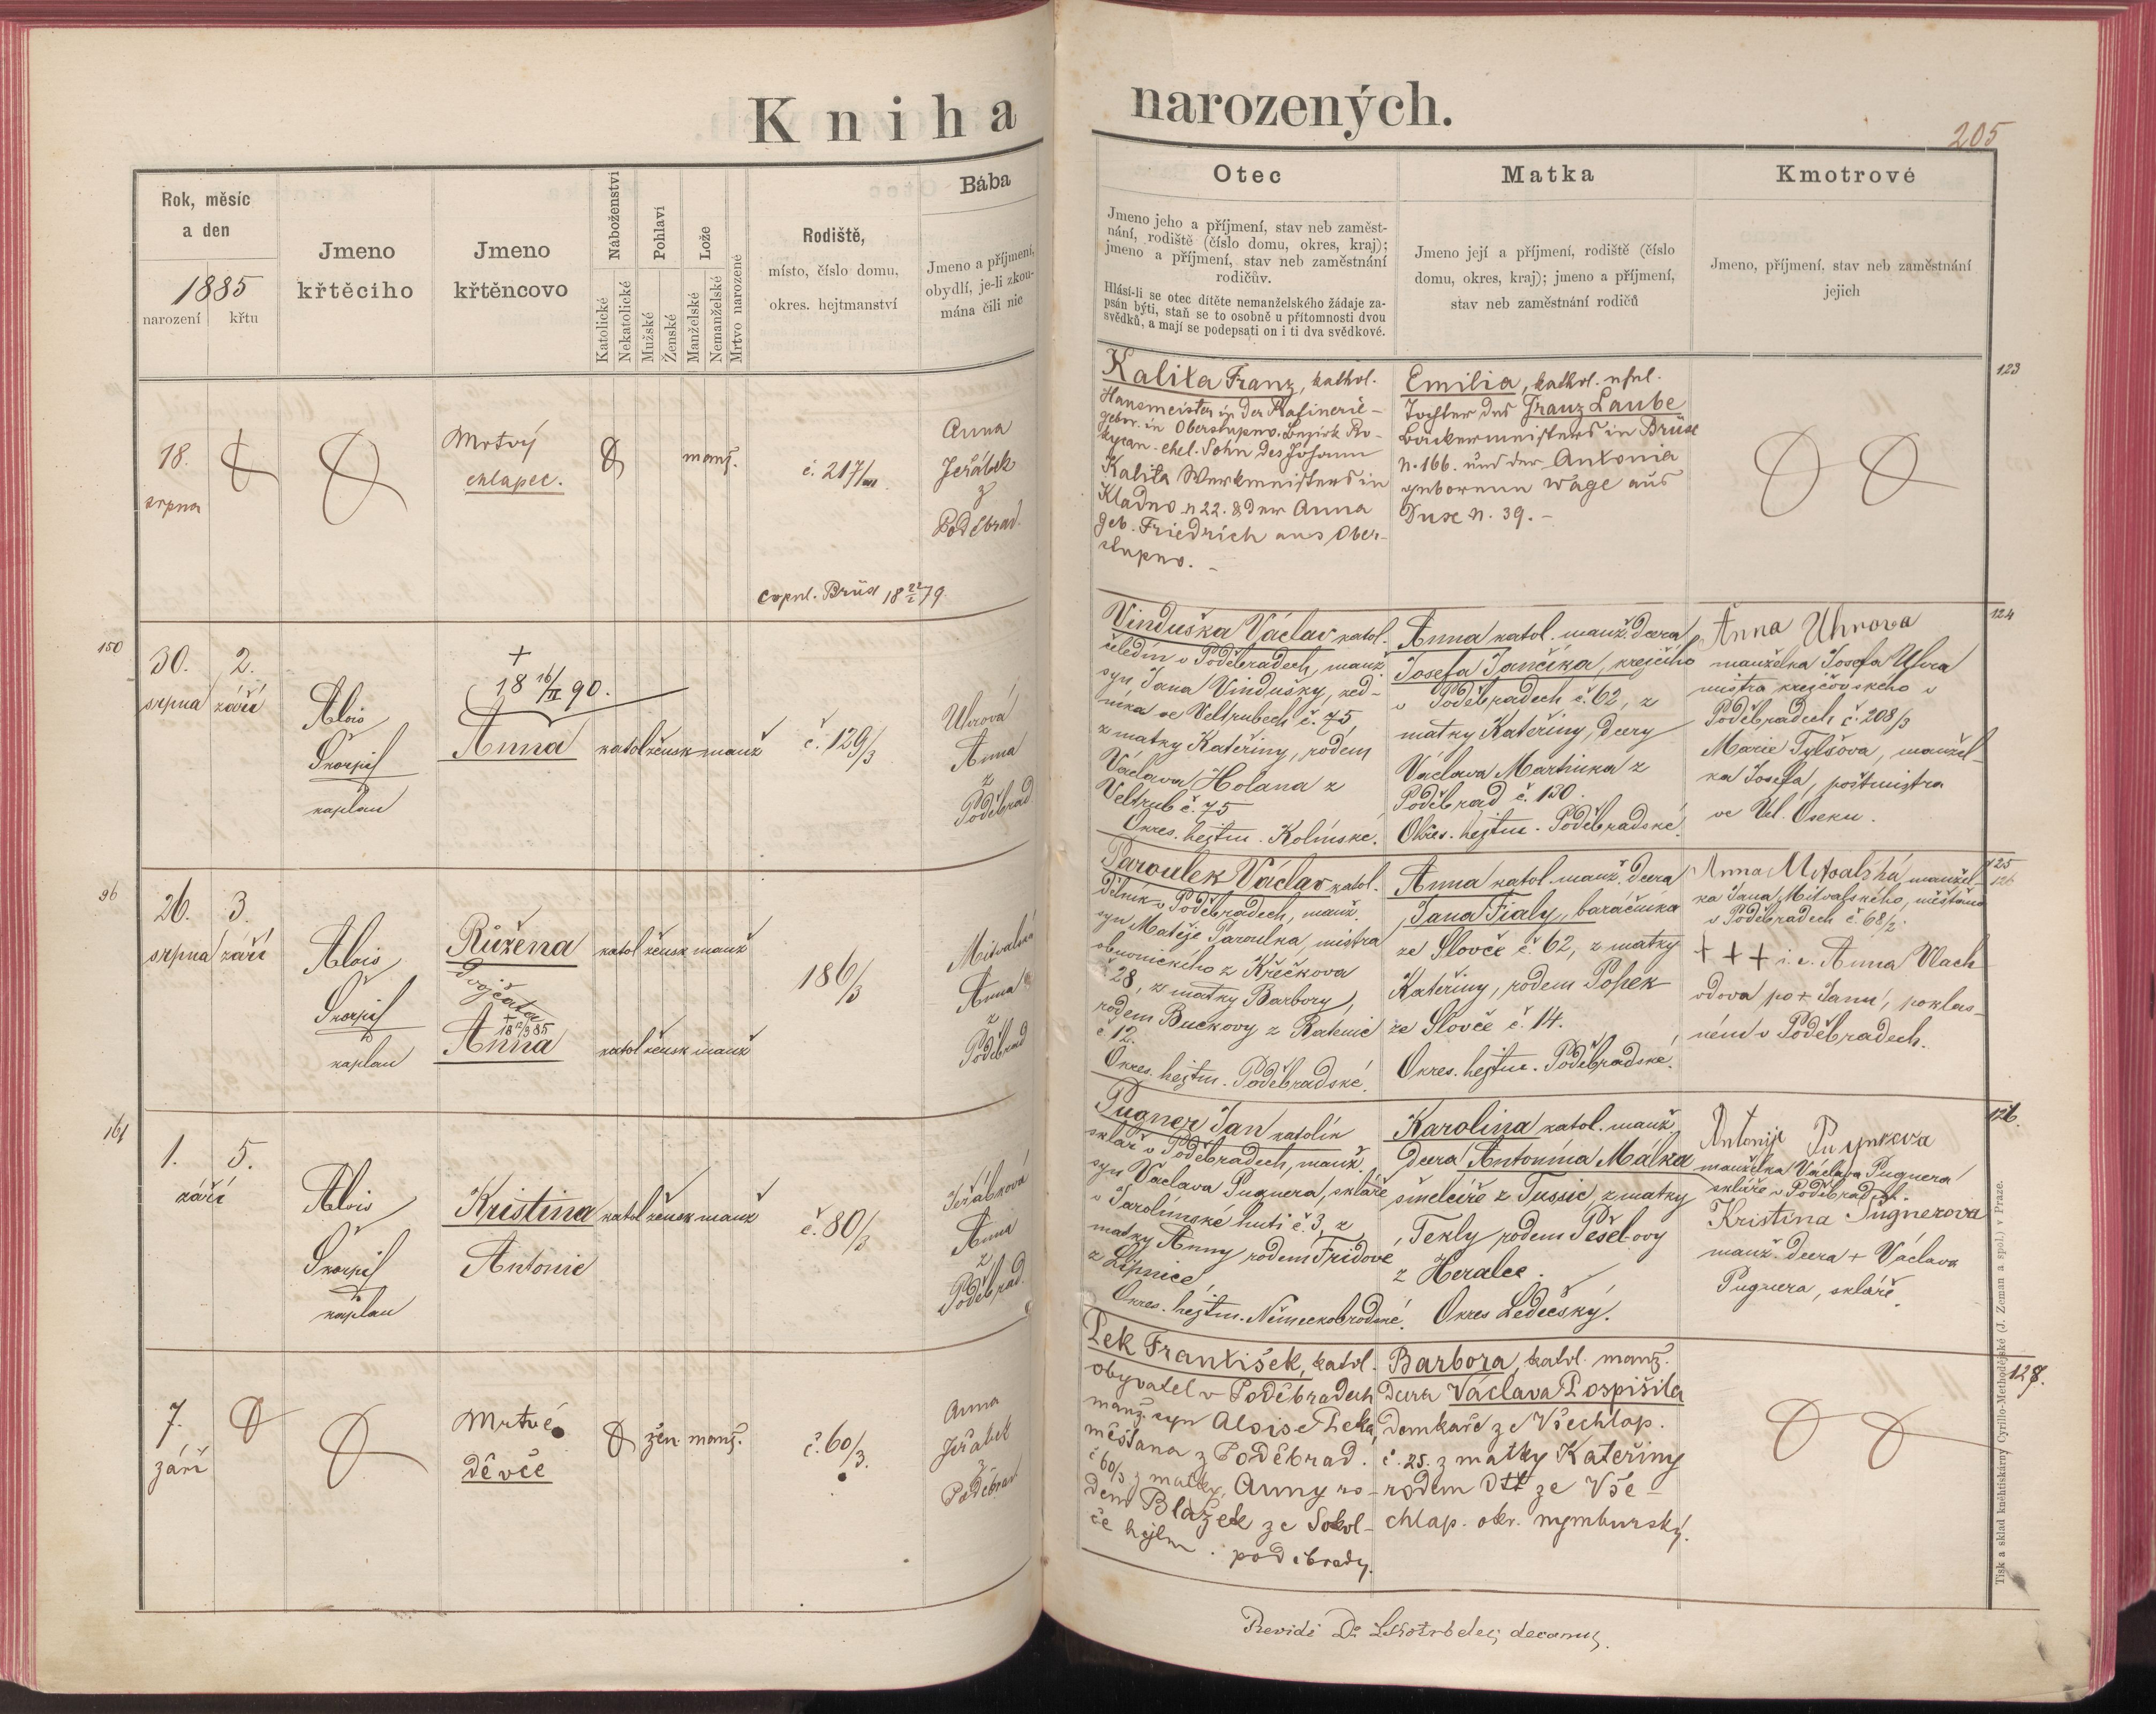 Kniha narozených.
205
Rok, měsíc
a den
1885
narození
křtu
Jmeno
křtěcího
Jmeno
křtěncovo
Náboženství
Katolické
Nekatolické
Pohlaví
Mužské
Ženské
Lože
Manželské
Nemanželské
Mrtvo narozené
Rodiště,
místo, číslo domu,
okres. hejtmanství
Bába
Jmeno a příjmení,
obydlí, je-li zkou-
mána čili nic
Otec
Jmeno jeho a příjmení, stav neb zaměst-
nání, rodiště (číslo domu, okres, kraj);
jmeno a příjmení, stav neb zaměstnání
rodičův.
Hlásí-li se otec dítěte nemanželského žádaje za-
psán býti, staň se to osobně u přítomnosti dvou
svědků, a mají se podepsati on i ti dva svědkové.
Matka
Jmeno její a příjmení, rodiště (číslo
domu, okres, kraj); jmeno a příjmení,
stav neb zaměstnání rodičů
Kmotrové
Jmeno, příjmení, stav neb zaměstnání
jejich
18.
srpna
Mrtvý
chlapec.
manž.
č. 217/III.
Anna
Jeřábek
z
Poděbrad.
copul. Brüx 18 22/2 79.
Kalita Franz, kathol.
Hausmeister in der Rafinerie-
gebor. in Oberstupno. Bezirk Ro-
kycan. ehel. Sohn des Johann
Kalita Werkmeisters in
Kladno n 22. & der Anna
geb. Friedrich aus Ober-
stupno. -
Emilia, kathol. ehel.
Tochter des Franz Laube
Bäckermeisters in Brüx
n. 166. und der Antonia
geborenen Wage aus
Dux n. 39. -
123
150
30.
srpna
2.
září
Alois
Škorpil
kaplan
+
18 16/II 90.
Anna
katol žensk manž
č. 129/3
Uhrová
Anna
z
Poděbrad
Vinduška Václav katol.
čeledín v Poděbradech, manž.
syn Jana Vindušky, zed-
níka ve Veltrubech č. 75,
z matky Kateřiny, rodem
Václava Holana z
Veltrub č. 75
Okres. hejtm. Kolínské.
Anna katol. manž. dcera
Josefa Jančíka, krejčího
v Poděbradech č. 62, z
matky Kateřiny, dcery
Václava Martinka z
Poděbrad č. 130.
Okres. hejtm. Poděbradské.
Anna Uhrova
manželka Josefa Uhra
mistra krejčovského v
Poděbradech č. 208/3
Marie Tylšova, manžel-
ka Josefa, poštmistra
ve Vel. Oseku.
124
96
26.
srpna
3.
září
Alois
Škorpil
kaplan
Růžena
dvojčata
+ 18 12/9 85
Anna
katol žensk manž
katol žensk manž
186/3
Mitvalská
Anna
z
Poděbrad
Paroulek Václav katol.
dělník v Poděbradech, manž.
syn Matěje Paroulka, mistra
obuvnického z Křečkova
č 28, z matky Barbory,
rodem Buckovy z Ratenic
č 12.
Okres. hejtm. Poděbradské.
Anna katol. manž. dcera
Jana Fialy, baráčníka
ze Slovče č. 62, z matky
Kateřiny, rodem Pošek
ze Slovče č. 14.
Okres. hejtm. Poděbradské.
Anna Mitvalská manžel-
ka Jana Mitvalského, měšťana
v Poděbradech č. 68/2.
+ + + i. e. Anna Vlach
vdova po + Janu, poklas-
ném v Poděbradech.
125
126
161
1.
září
5.
Alois
Škorpil
kaplan
Kristina
Antonie
katol žensk manž
č. 80/3
Jeřábková
Anna
z
Poděbrad.
Pugner Jan katolík
sklář v Poděbradech, manž.
syn Václava Pugnera, skláře
v Karolínské huti č. 3, z
matky Anny rodem Fridové
z Lipnice,
Okres. hejtm. Německobrodské.
Karolina katol. manž.
dcera Antonína Málka
šmelcíře z Tussic, z matky
Tekly rodem Pešelovy
z Heralec.
Okres Ledečský.
Antonije Pugnerova
manželka Václava Pugnera
skláře v Poděbradech.
Kristina Pugnerova
manž. dcera + Václava
Pugnera, skláře.
126.
7.
září
Mrtvé
děvče
žen. manž.
č. 60/3.
Anna
Jeřábek
z
Poděbrad
Lek František, katol.
obyvatel v Poděbradech
manž. syn Aloise Leka,
měšťana z Poděbrad.
č 60/3 z matky, Anny ro-
dem Blažek ze Sokol-
če hejtm. poděbrady.
Barbora, katol. manž.
dcera Václava Pospíšila
domkaře ze Všechlap.
č. 25. z matky Kateřiny
rodem Ott ze Vše-
chlap. okr. nymburský.
127.
Revidi Dr. decanus.
Tisk a sklad kněhtiskárny Cyrillo-Methodějské (J. Zeman a spol.) v Praze.